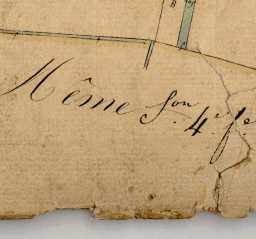 Même Son 4e fe